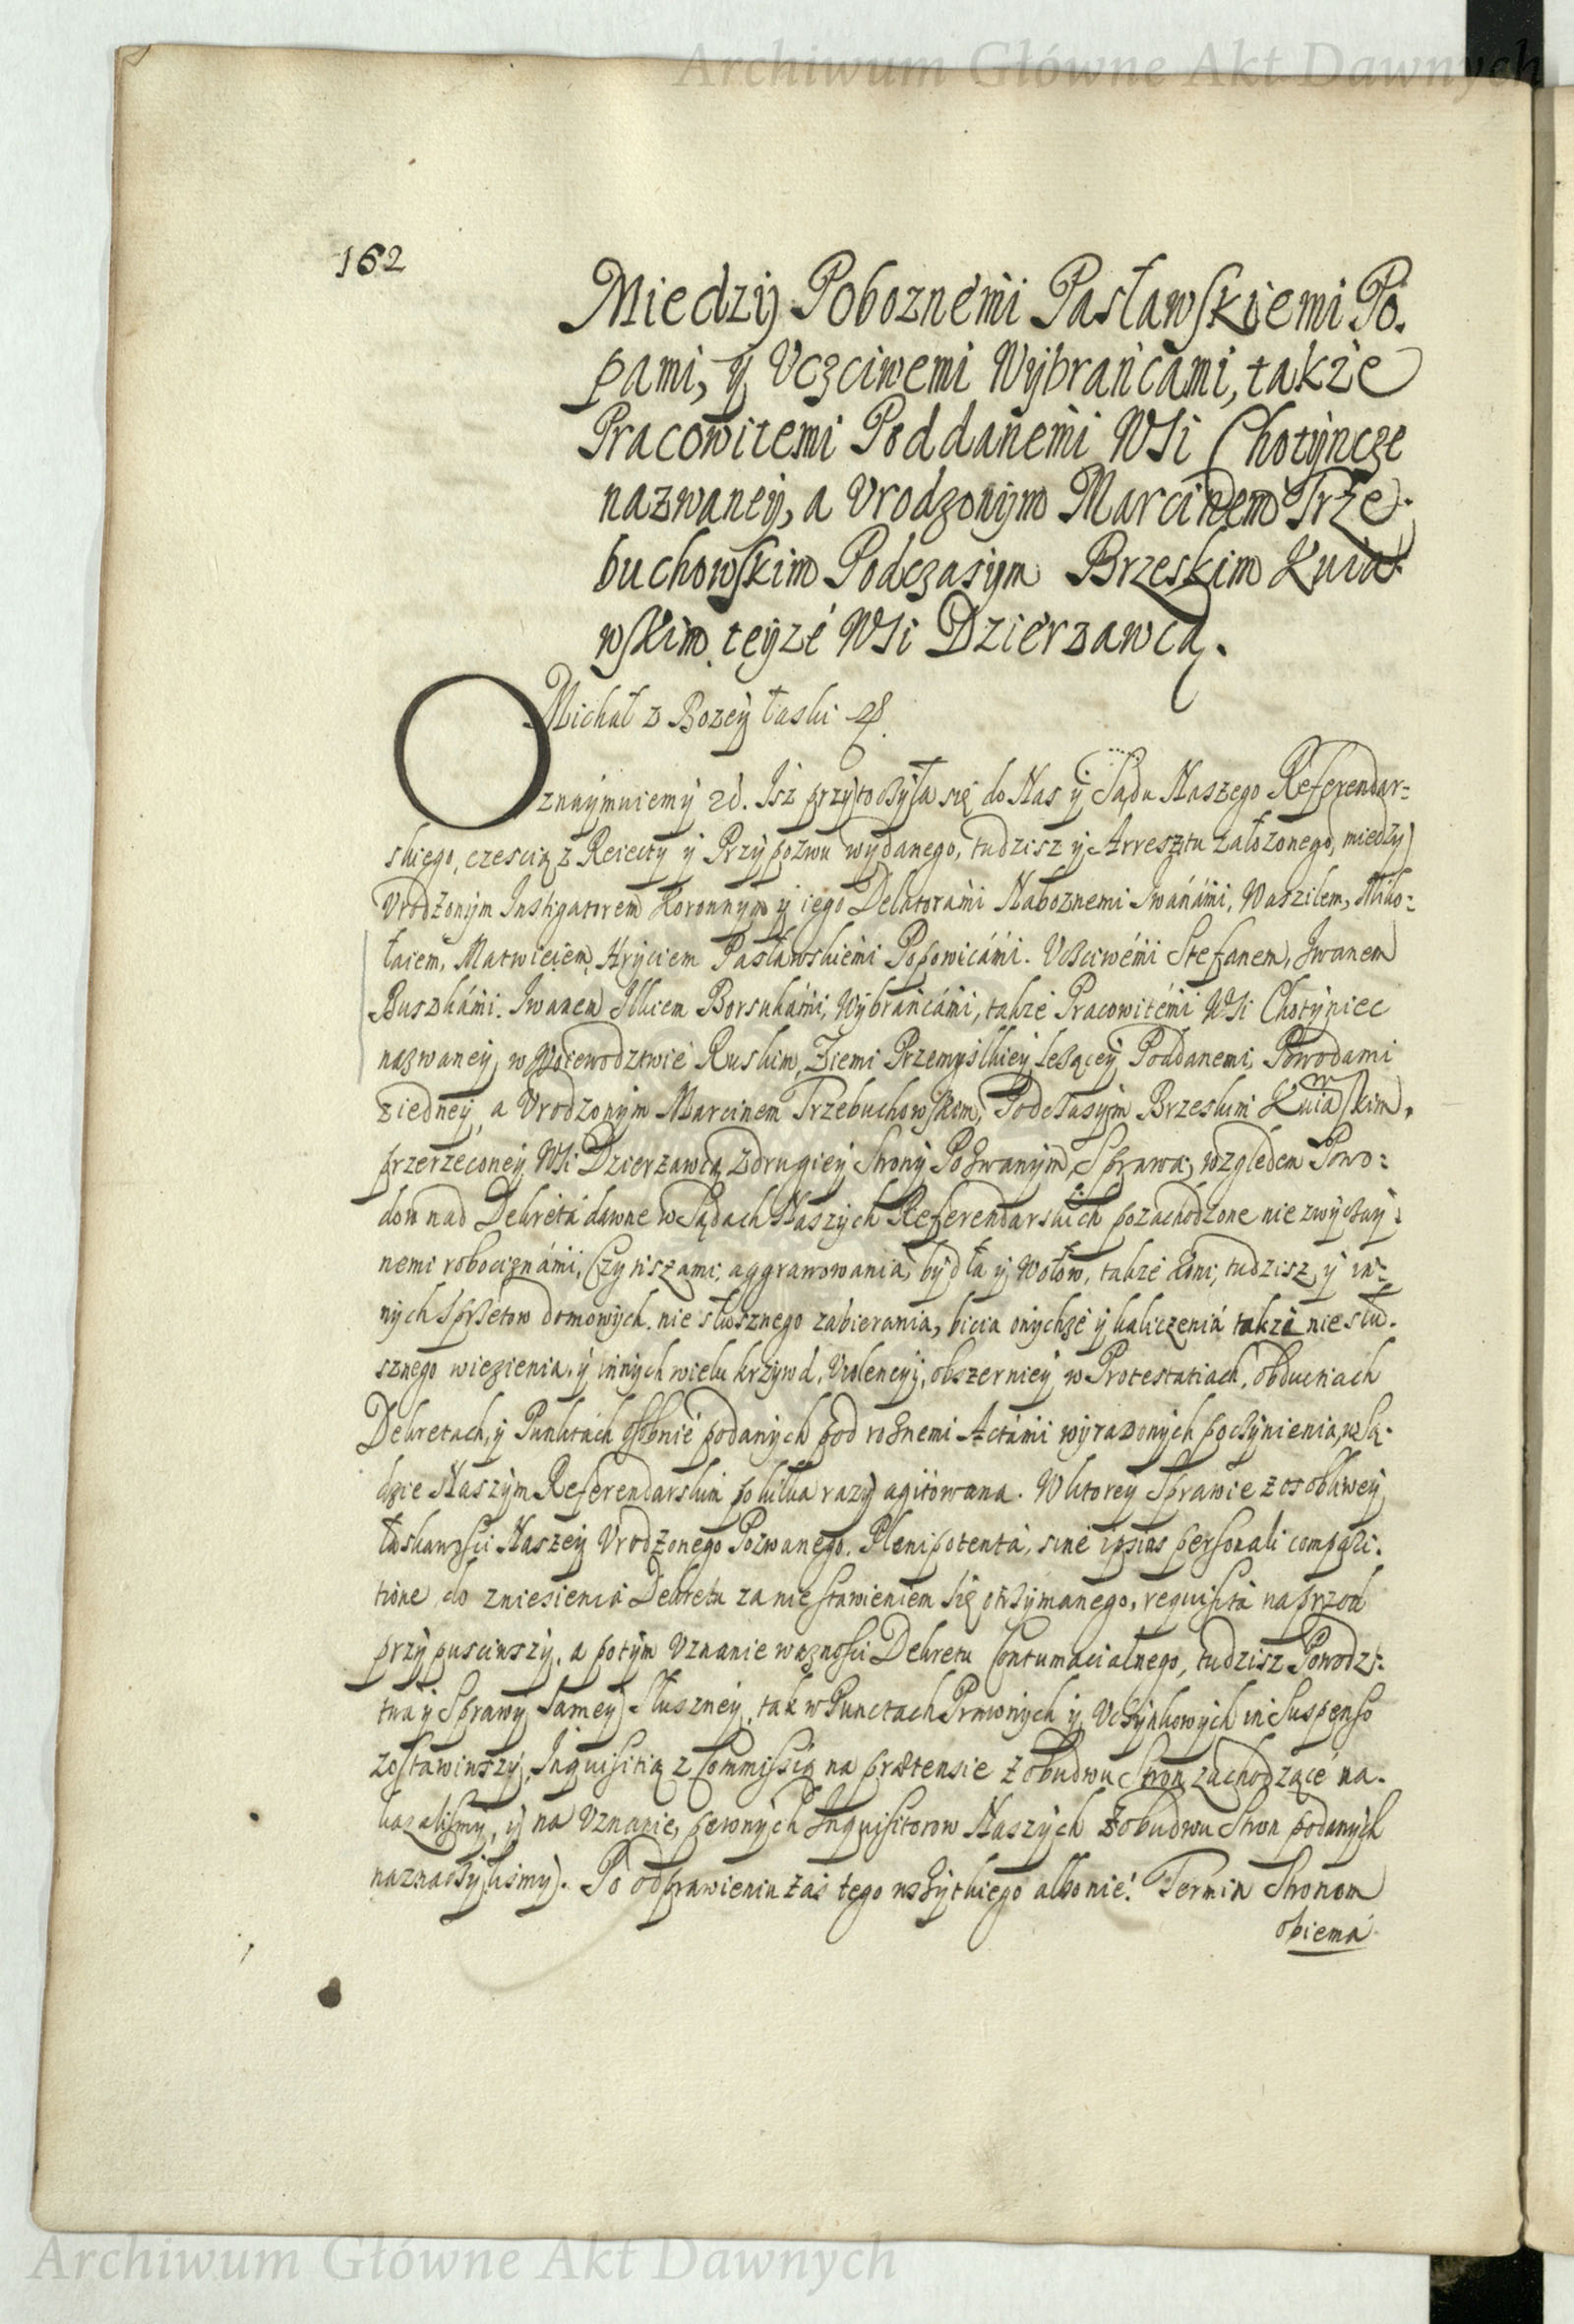 Archiwum Główne Akt Dawnych
162
Miedzy Poboznemi Pasławskiemi Po-
pami, y Vczciwemi Wybrańcami, także
Pracowitemi Poddanemi WSi Chotyncze
nazwaney, a Vrodzonym Marcinem Trze-
buchowskim Podczasym Brzeskim Kuia-
wskim teyże WSi Dzierzawcą.
Michał z Bozey łaski
Oznaymuiemy Isz przytoczyła się do Nas y Sądu Naszego Referendar=
skiego, czescią z Reiecty y Przypozwu wydanego, tudzisz y Arresztu załozonego, miedzy
Vrodzonym Instigatorem Koronnym y iego Delatorami Naboznemi Iwanami, Waszilem, Miko=
łaiem, Matwieiem, Hryciem Pasławskiemi Popowicámi. Vcsciwémi Stefanem, Iwanem
Buszkámi. Iwanem Ilkiem Borsukámi, Wybrańcámi, także Pracowitémi WSi Chotyniec
nazwaney, w Woiewodztwie Ruskim, Ziemi Przemyślkiey leżącey Poddanemi, Powodami
z iedney, a Vrodzonym Marcinem Trzebuchowskim, Podczasym Brzeskim Kuiaskim,
przerzeconey WSi Dzierzawcą z drugiey strony Pozwanym, Sprawa, względem Powo=
dow nad Dekreta dawne w Sądach Naszych Referendarskich pozachodzone niezwyczay=
nemi robociznámi, Czynszami, aggrawowania, bydła y Wołow, także koni, tudzisz y in=
nych sprzetow domowych, niesłusznego zabierania, bicia onychże y kaliczenia także niesłu-
sznego wiezienia, y innych wielu krzywd, Violencyi, obszerniey w Protestatiach, obductiach
Dekretach, y Punktach osobnie podanych pod roznemi Actámi wyrazonych poczynienia, w Są-
dzie Naszym Referendarskim po kilka razy agitowana. W ktorey Sprawie z osobliwey
łaskawosci Naszey Vrodzonego Pozwanego. Plenipotenta, sine ipsius personali compari-
tione do zniesienia Dekretu za nie stawieniem się otrzymanego, requisita naprzod
przypusciwszy, a potym Vznanie waznosci Dekretu Contumacialnego, tudzisz Powodz-
twa y Sprawy samey słuszney, tak w Punctach Prawnych y Vczynkowych in Suspenso
zostawiwszy, Inquisitią z Commissią na prætensie z obudwu stron zachodzące na-
kazalismy, y na Vznanie, pewnych Inquisitorow Naszych z obudwu stron podanych
naznaczylismy. Po odprawieniu zaś tego wszytkiego albo nie: Termin stronom
obiema
Archiwum Główne Akt Dawnych